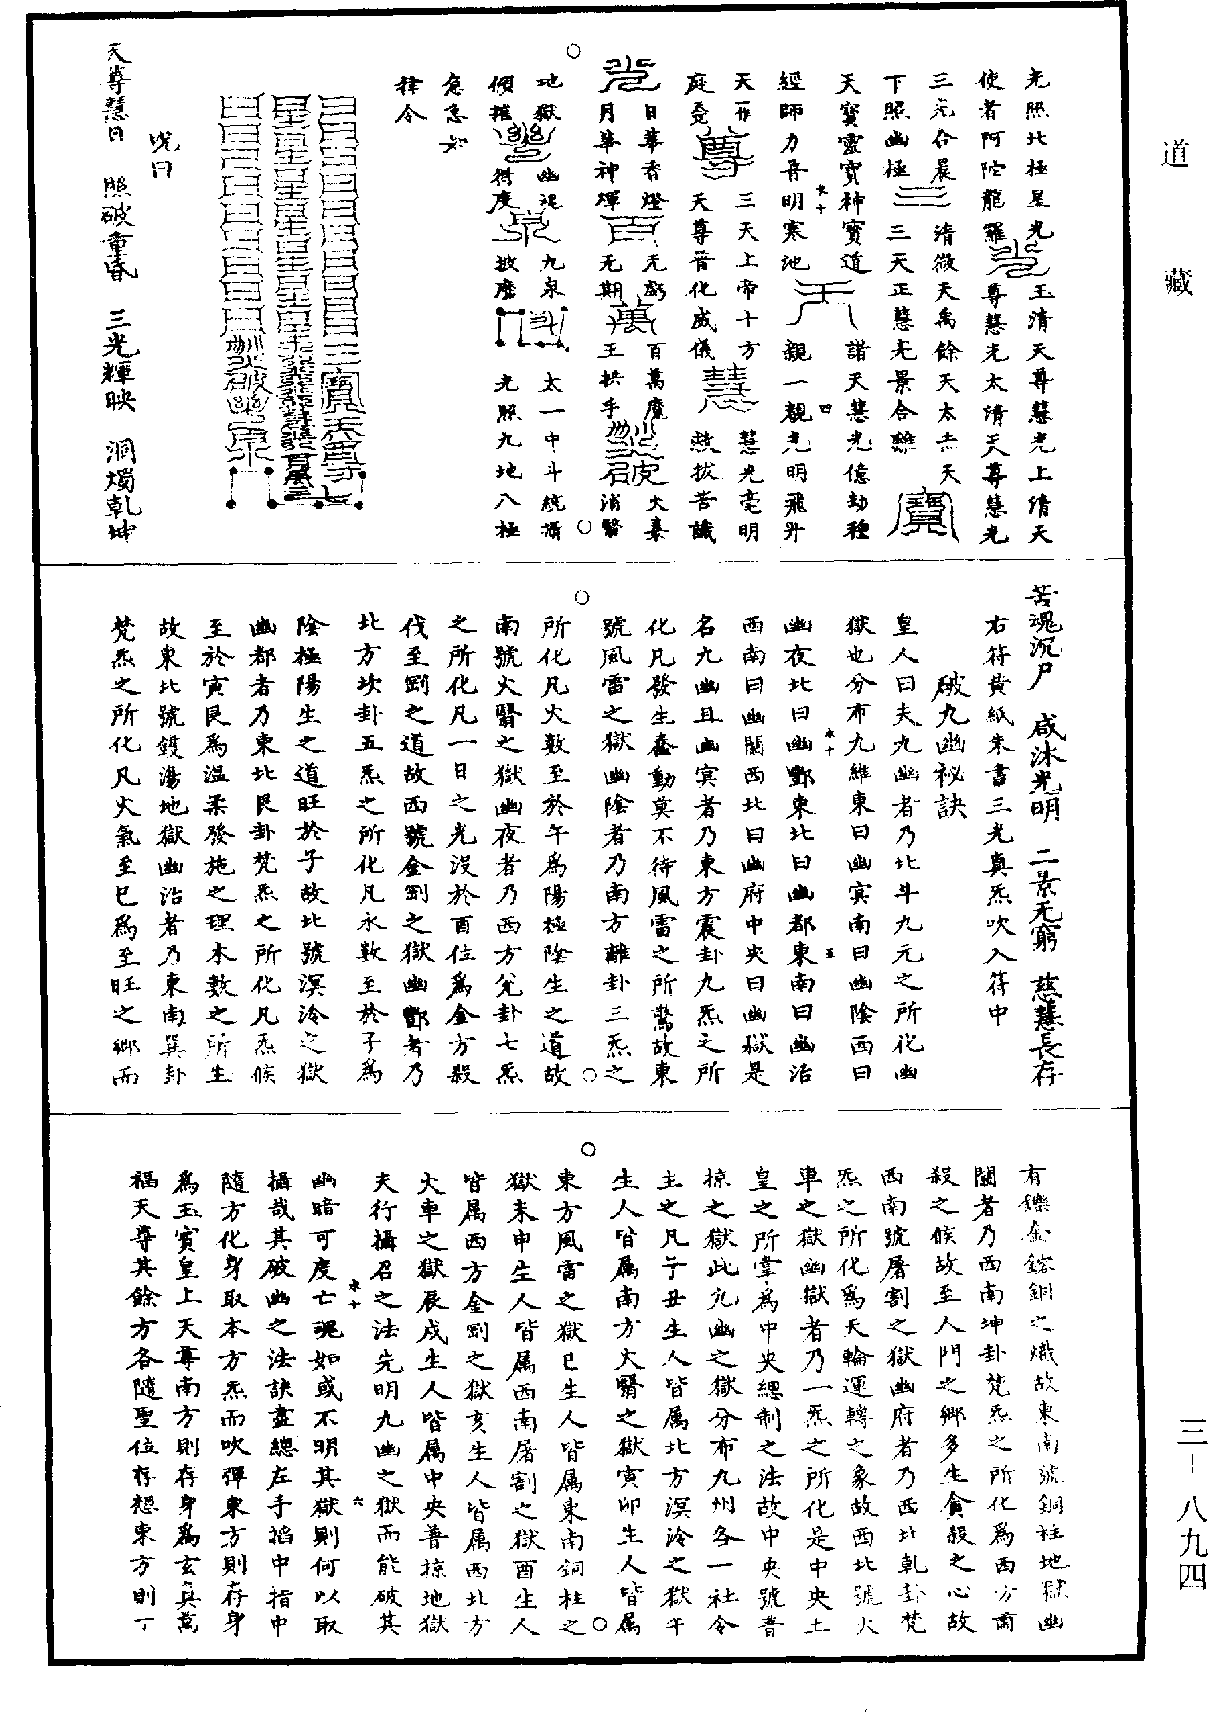 道藏
光照北極星光玉清天尊慧光上清天
使者阿陀龍羅尊慧光太清天尊慧光
三元合晨清微天禹餘天太赤天
下照幽極三三天正慧光景合離寶
天寶靈寶神寶道諸天慧光億劫種
經師力吞明寒池天親一親光明飛升
天尊三天上帝十方慧光毫明
天尊普化威儀慧救拔苦讁
日華香燈百无萬百萬魔破大秦
月華神燁无期王拱手消
地獄幽泥九泉斗太一中斗統攝
豐得度泉披塵光照九地八極
急急如
律令
咒曰
天尊慧日 照破重昏 三光輝映 洞燭乾坤
苦魂沉尸 咸沐光明 二景无窮 慈慧長存
右符黄紙朱書三光真炁吹入符中
破九幽祕訣
皇人曰夫九幽者乃北斗九元之所化幽
獄也分布九維東曰幽冥南曰幽陰西曰
幽夜北曰幽酆東北曰幽都東南曰幽治
西南曰幽關西北曰幽府中央曰幽獄是
名九幽且幽冥者乃東方震卦九炁之所
化凡發生蠢動莫不待風雷之所驚故東
號風雷之獄幽陰者乃南方離卦三炁之
所化凡火數至於午為陽極陰生之道故
南號火翳之獄幽夜者乃西方兌卦七炁
之所化凡一日之光沒於酉位為金方殺
伐至剛之道故西號金剛之獄幽酆者乃
北方坎卦五炁之所化凡水數至於子為
陰極陽生之道旺於子故北號溟泠之獄
幽都者乃東北艮卦梵炁之所化凡炁候
至於寅艮為溫柔發施之理本數之所生
故東北號鑊湯地獄幽治者乃東南巽卦
梵炁之所化凡火氣至巳為至旺之鄉而
有鑠金鎔銅之熾故東南號銅柱地獄幽
關者乃西南坤卦梵炁之所化為西方肅
殺之候故至人門之鄉多生貪殺之心故
西南號屠割之獄幽府者乃西北乾卦梵
炁之所化為天輪運轉之象故西北號火
車之獄幽獄者乃一炁之所化是中央土
皇之所掌為中央總制之法故中央號普
掠之獄此九幽之獄分布九州各一社令
主之凡子丑生人皆属北方溟泠之獄午
生人皆属南方火翳之獄寅卯生人皆属
東方風雷之獄巳生人皆属東南銅柱之
獄未申生人皆属西南屠割之獄酉生人
皆属西方金剛之獄亥生人皆属西北方
火車之獄辰戌生人皆属中央普掠地獄
夫行攝召之法先明九幽之獄而能破其
幽暗可度亡魂如或不明其獄則何以取
攝哉其破幽之法訣盡總左手掐中指中
隨方化身取本方炁而吹彈東方則存身
為玉寶皇上天尊南方則存身為玄真萬
福天尊其餘方各隨聖位存想東方則丁
三－八九四